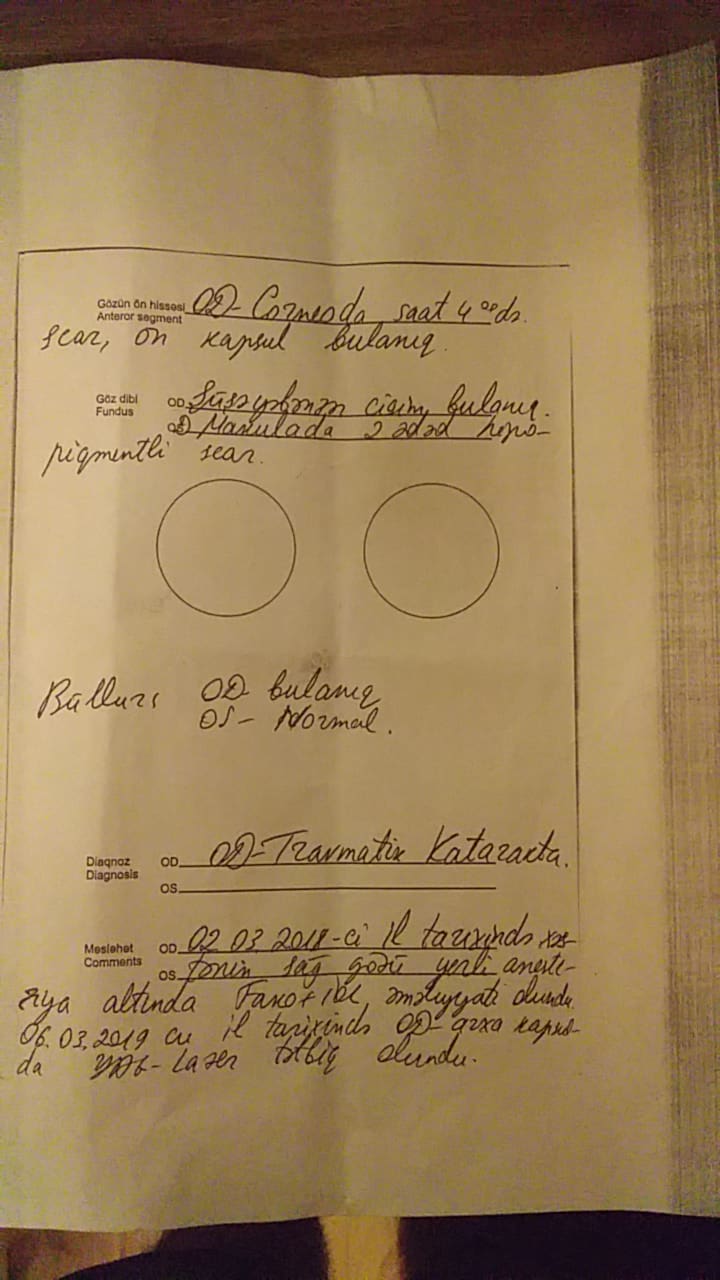 Gözün ön hissəsi OD- Corneada saat 4⁰⁰də
Anteror segment
scar, ön kapsul bulanıq.
Göz dibi OD Şüşəyəbənzər cisim bulanıq.
Fundus OD Makulada 2 ədəd hipo-
piqmentli scar.
Büllur: OD bulanıq
OS- Normal.
Diaqnoz OD OD-Travmatik Katarakta.
Diagnosis OS
Meslehet OD 02 03.2018-ci il tarixində xəs-
Comments OS tənin sağ gözü yerli aneste-
ziya altında Fako+İOL əməliyyatı olundu.
06.03.2019 cu il tarixində OD- arxa kapsul-
da YAG-Lazer tətbiq olundu.